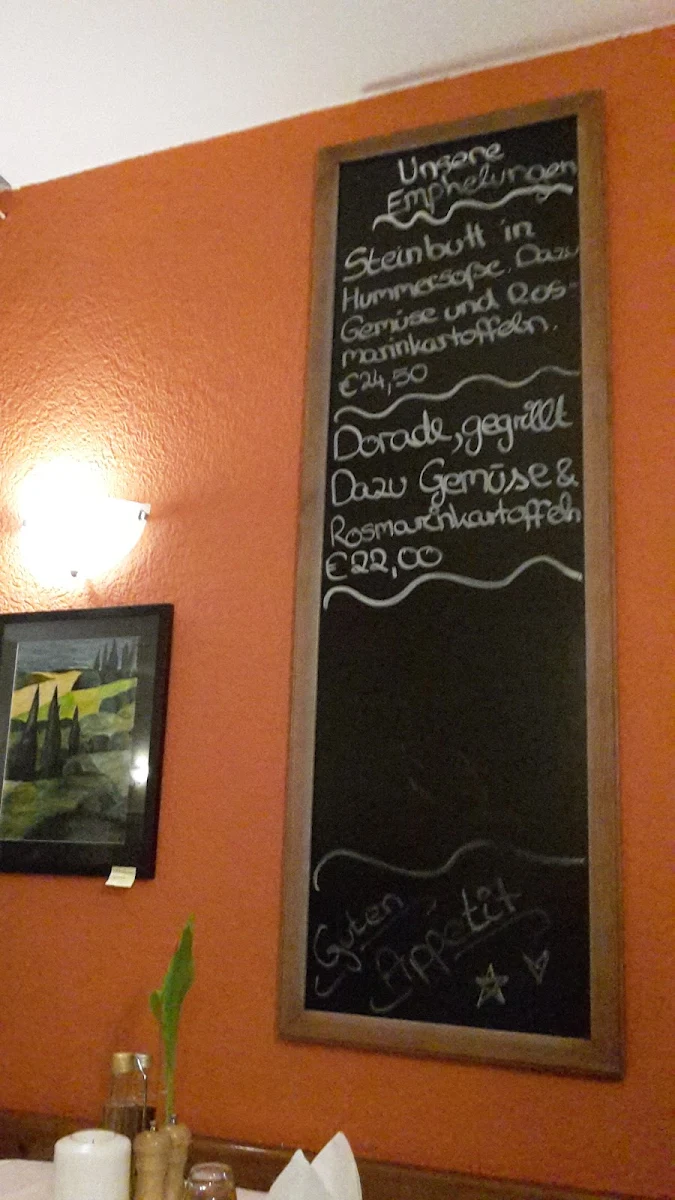 Unsere
Emphelungen
Steinbutt in
Hummersoße. Dazu
Gemüse und Ros-
marinkartoffeln.
€24,50
Dorade, gegrillt
Dazu Gemüse &
Rosmarinkartoffeln
€22,00
Guten
Appetit